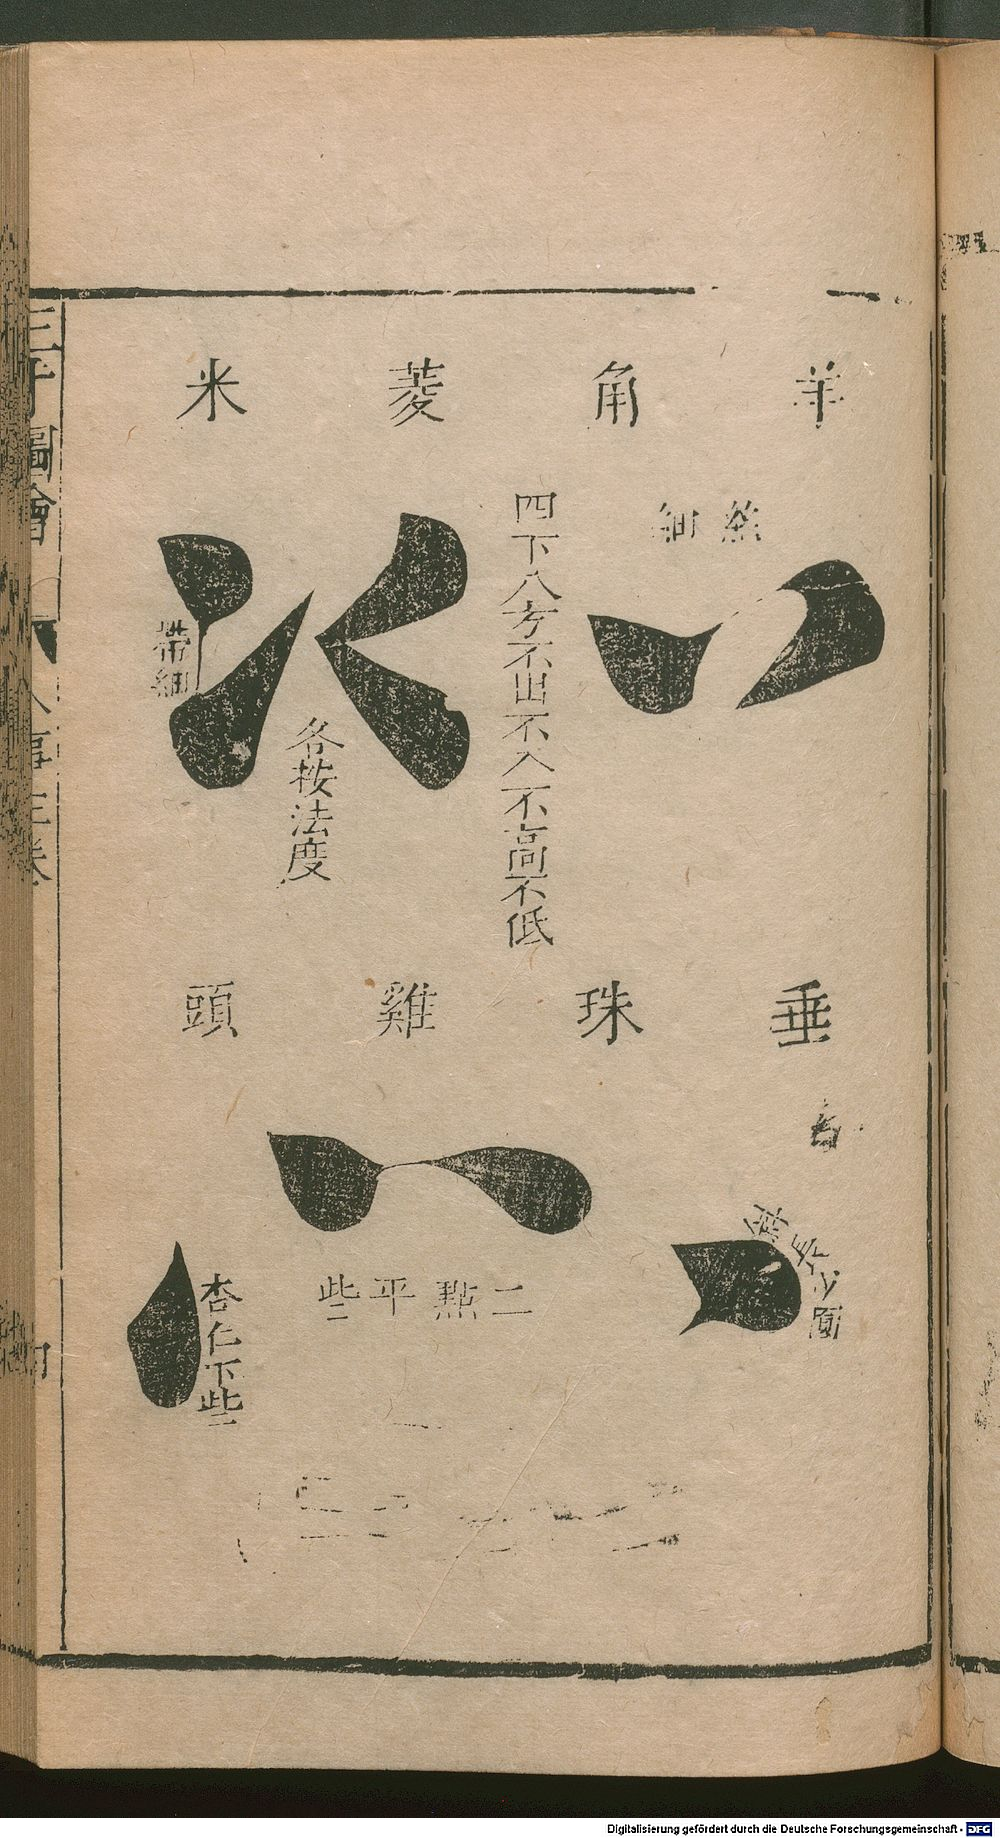 羊角菱米
絲細
四下八方不出不入不高不低
各按法度
帶細
垂珠雞頭
二點平些
杏仁下些
三才圖會
人事三卷
Digitalisierung gefördert durch die Deutsche Forschungsgemeinschaft - DFG